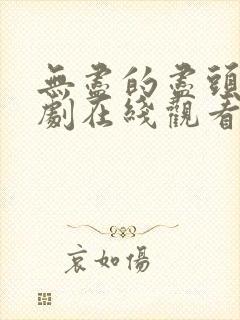 無盡的盡頭
劇在綫觀看
哀如傷